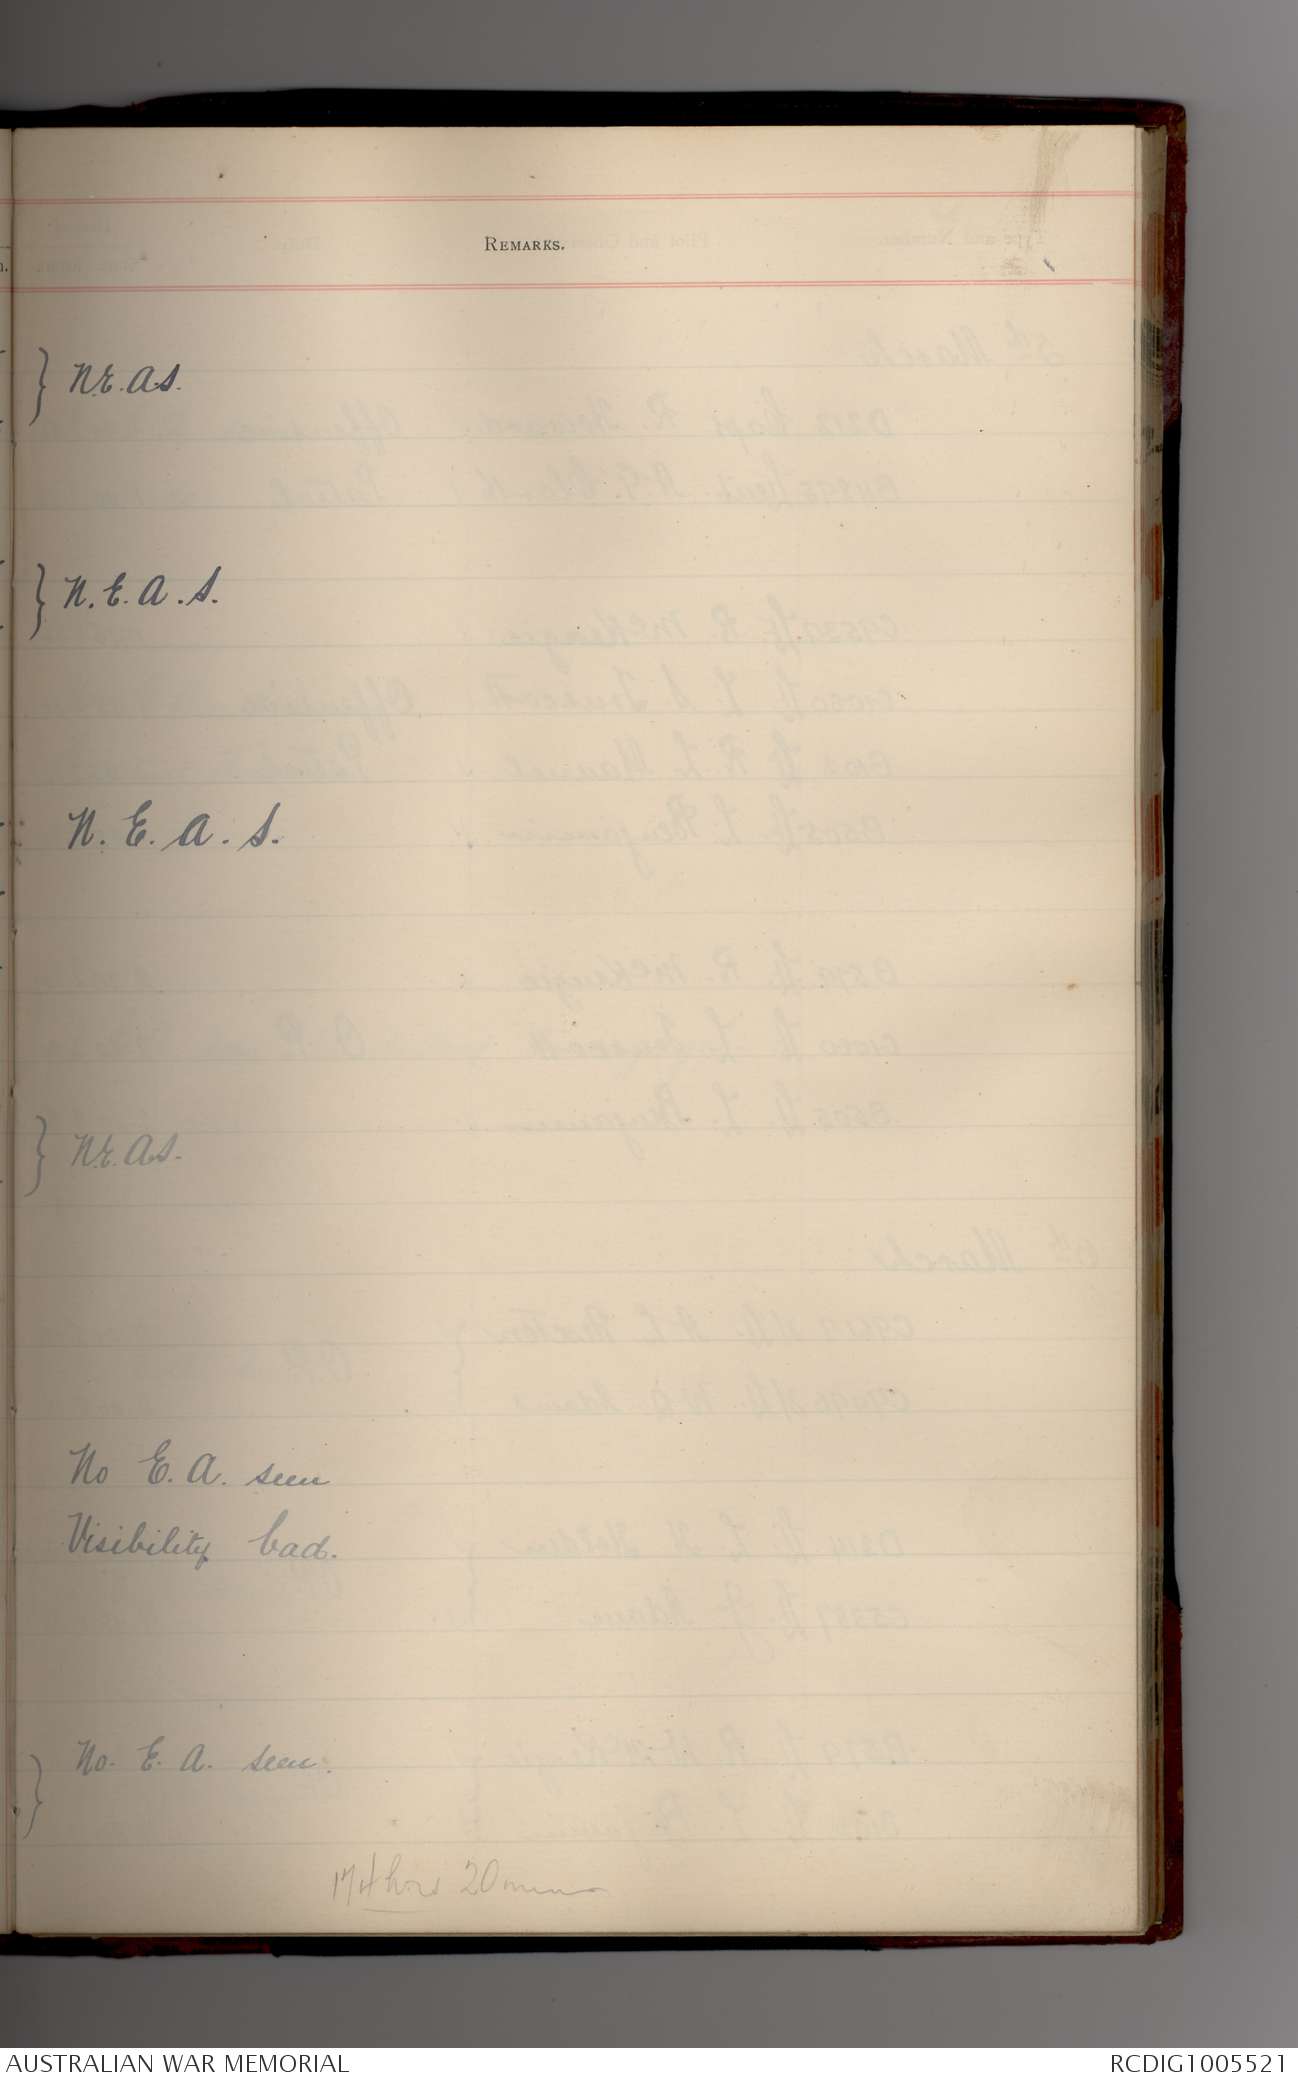 REMARKS.
} N.E.A.S.
} N.E.A.S.
N.E.A.S.
} N.E.A.S.
No E.A. seen
Visibility bad.
} No. E. A. seen.
174 hours 20 mins
AUSTRALIAN WAR MEMORIAL
RCDIG1005521